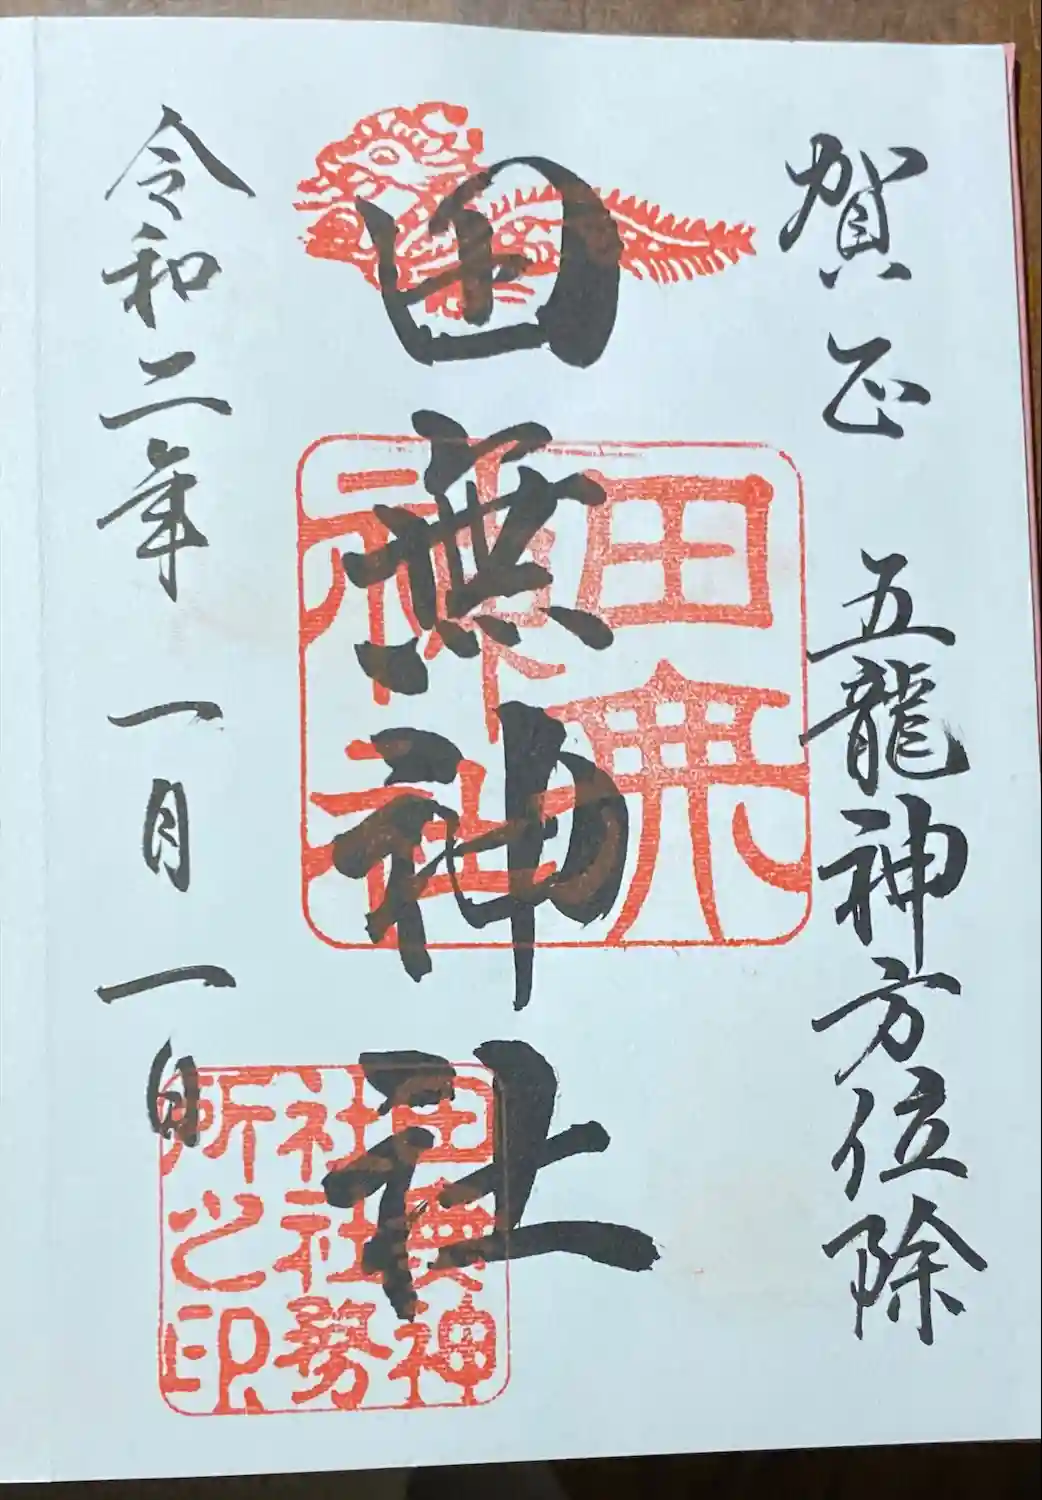 賀正 五龍神方位除
田無神社
令和二年 一月一日
田無
神社
田無神
社社務
所之印